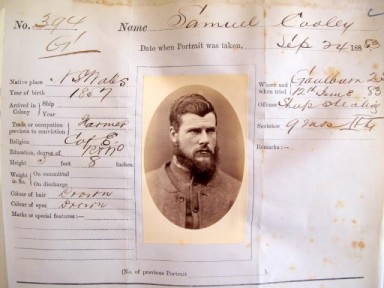 No. 394
G
Name Samuel Cooley
Date when Portrait was taken, Sep 24 1883
Native place N S Wales
Year of birth 1857
Arrived in Colony
Ship
Year
Trade or occupation previous to conviction
Farmer
Religion C of E
Education, degree of R &
Height 5 feet 8 inches.
Weight in lbs.
On committal
On discharge
Colour of hair Brown
Colour of eyes Brown
Marks or special features:—
Where and when tried
Goulburn
12th June 83
Offence Sheep Stealing
Sentence 9 mos
Remarks:—
(No. of previous Portrait ).